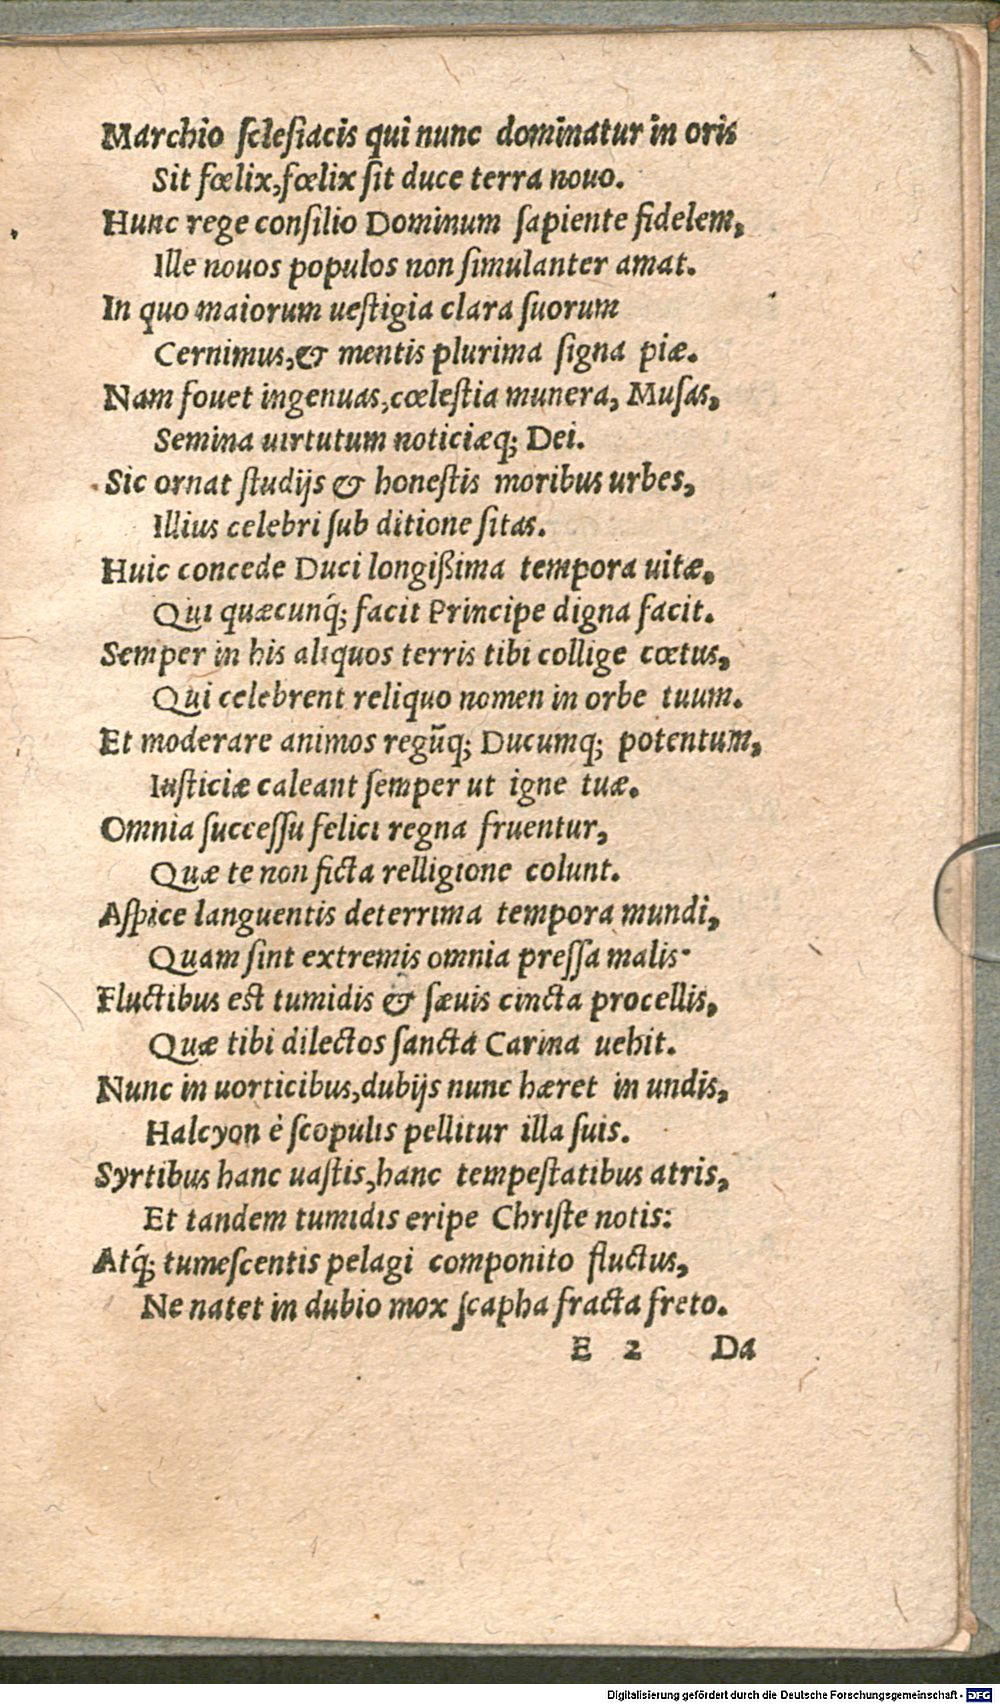 Marchio ſcleſiacis qui nunc dominatur in oris
Sit fœlix, fœlix ſit duce terra nouo.
Hunc rege conſilio Dominum ſapiente fidelem,
Ille nouos populos non ſimulanter amat.
In quo maiorum ueſtigia clara ſuorum
Cernimus, & mentis plurima ſigna piæ.
Nam fouet ingenuas, cœleſtia munera, Muſas,
Semina uirtutum noticiæq́; Dei.
Sic ornat ſtudijs & honeſtis moribus urbes,
Illius celebri ſub ditione ſitas.
Huic concede Duci longißima tempora uitæ,
Qui quæcunq́; facit Principe digna facit.
Semper in his aliquos terris tibi collige cœtus,
Qui celebrent reliquo nomen in orbe tuum.
Et moderare animos regũq; Ducumq; potentum,
Iuſticiæ caleant ſemper ut igne tuæ.
Omnia ſucceſſu felici regna fruentur,
Quæ te non ficta relligione colunt.
Aſpice languentis deterrima tempora mundi,
Quam ſint extremis omnia preſſa malis.
Fluctibus est tumidis & ſæuis cincta procellis,
Quæ tibi dilectos ſancta Carina uehit.
Nunc in uorticibus, dubijs nunc hæret in undis,
Halcyon è ſcopulis pellitur illa ſuis.
Syrtibus hanc uaſtis, hanc tempeſtatibus atris,
Et tandem tumidis eripe Chriſte notis:
Atq́; tumeſcentis pelagi componito fluctus,
Ne natet in dubio mox ſcapha fracta freto.
E 2 Da
Digitalisierung gefördert durch die Deutsche Forschungsgemeinschaft - DFG